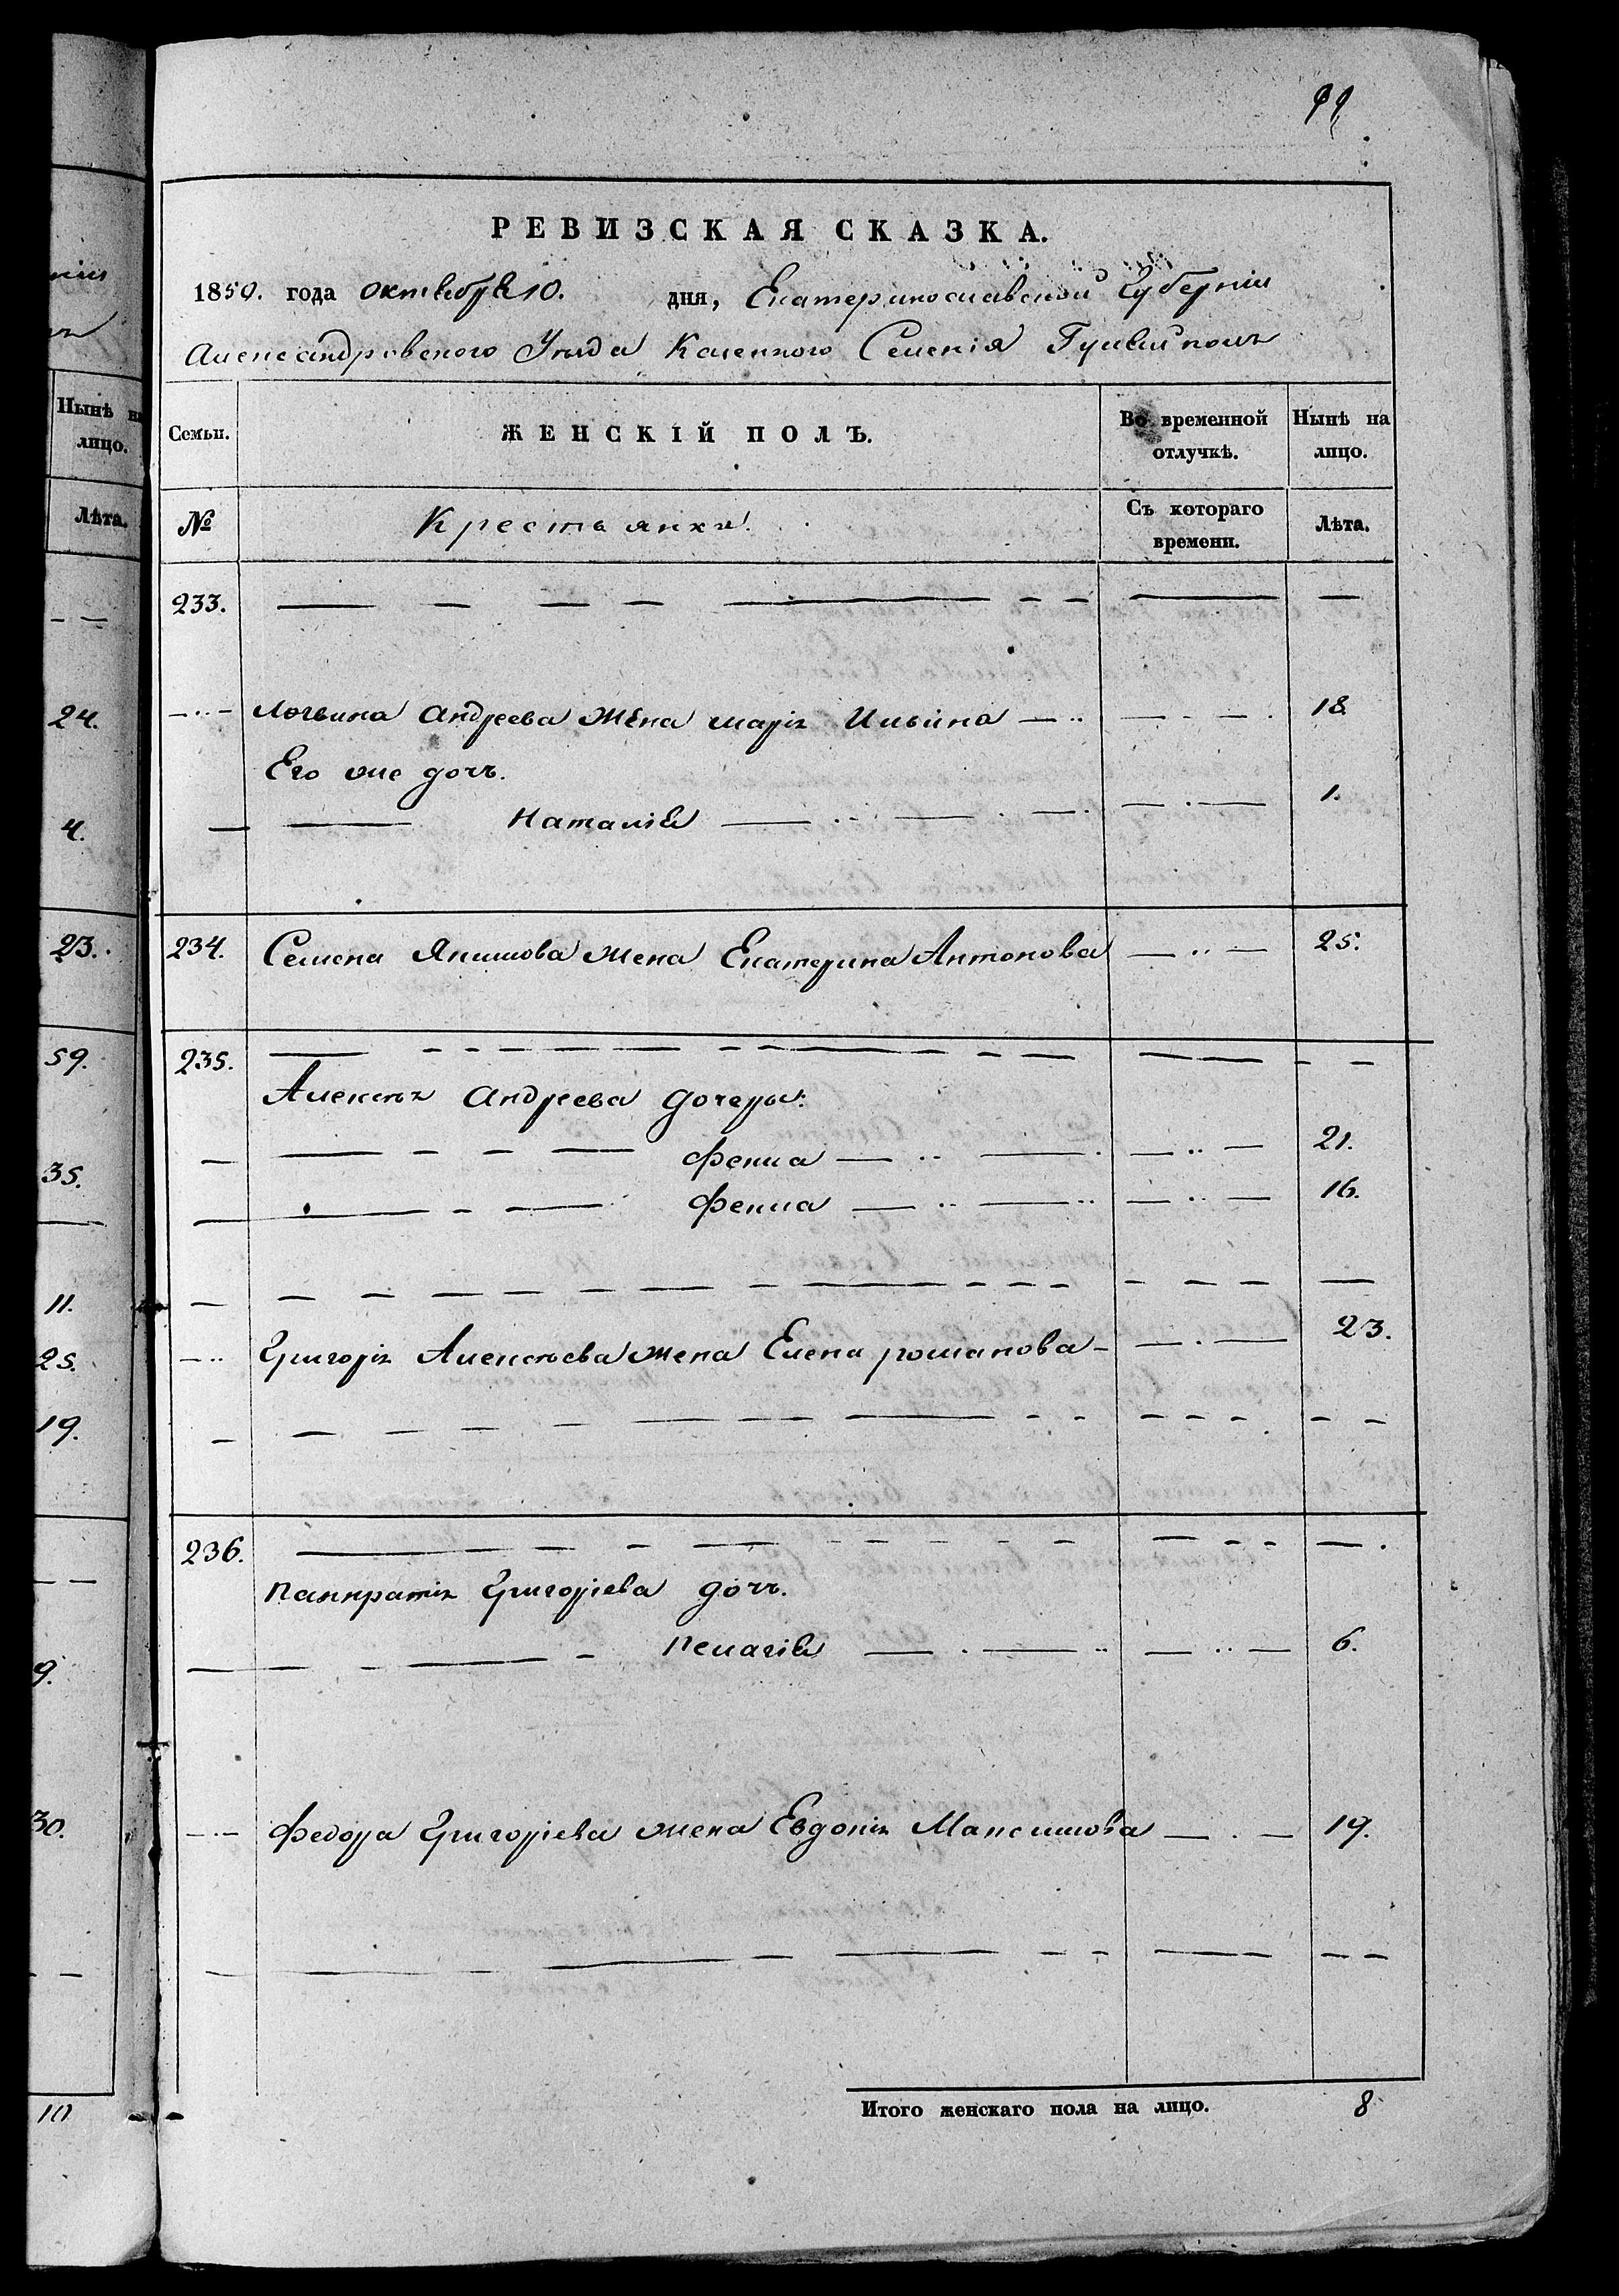 99
РЕВИЗСКАЯ СКАЗКА.
1850. года октября 10. дня, Екатеринославской Губерніи
Александровского Уезда Казенного Селенія Гуляйполя
Семьи. ЖЕНСКІЙ ПОЛЪ. Во временной отлучкѣ. Нынѣ на лицо.
№ Крестьянки. Съ котораго времени. Лѣта.
233.
Логвина Андреева жена марія Ильина 18
Его же дочь.
Наталія 1.
234. Семена Якимова жена Екатерина Антонова 25.
235.
Алексѣя Андреева дочеры:
Фенна 21.
Фенна 16.
Григорія Алексѣева жена Елена романова 23.
236.
панкратія Григоріева дочь.
пелагія 6.
Федора Григоріева жена Евдокія Максимова 19.
Итого женскаго пола на лицо. 8
Нынѣ на
лицо.
Лѣта.
24.
4.
23.
59.
35.
11.
25.
19.
9.
30.
10